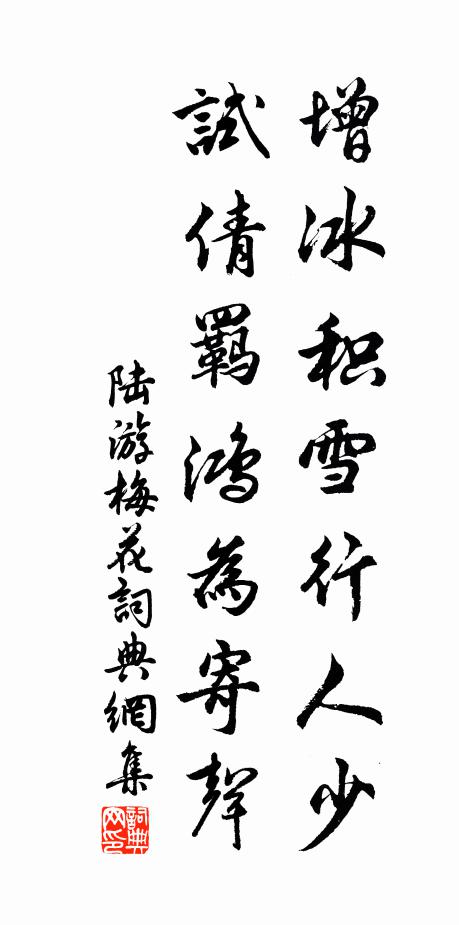 增冰积雪行人少
試倩羈鴻為寄聲
陆游梅花詞典網集
詞典网印